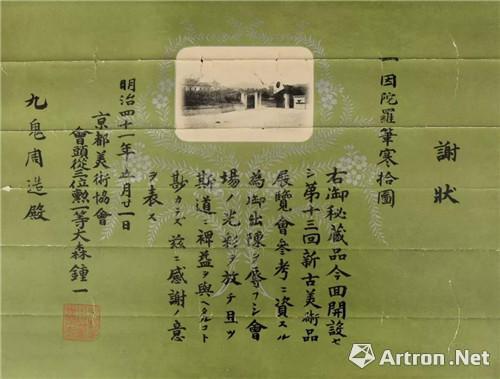 謝狀
一因陀羅筆寒拾圖
右御秘藏品今回開設セ
シ第十三回新古美術品
展覽會參考ニ資スル
為御出陳ヲ辱フシ會
場ノ光彩ヲ放チ且ツ
斯道ニ裨益ヲ與ヘタルコト
尠カラス茲ニ感謝ノ意
ヲ表ス
明治四十一年五月廿一日
京都美術協會
會頭從三位勲一等大森鍾一
九鬼周造殿
Artron.Net